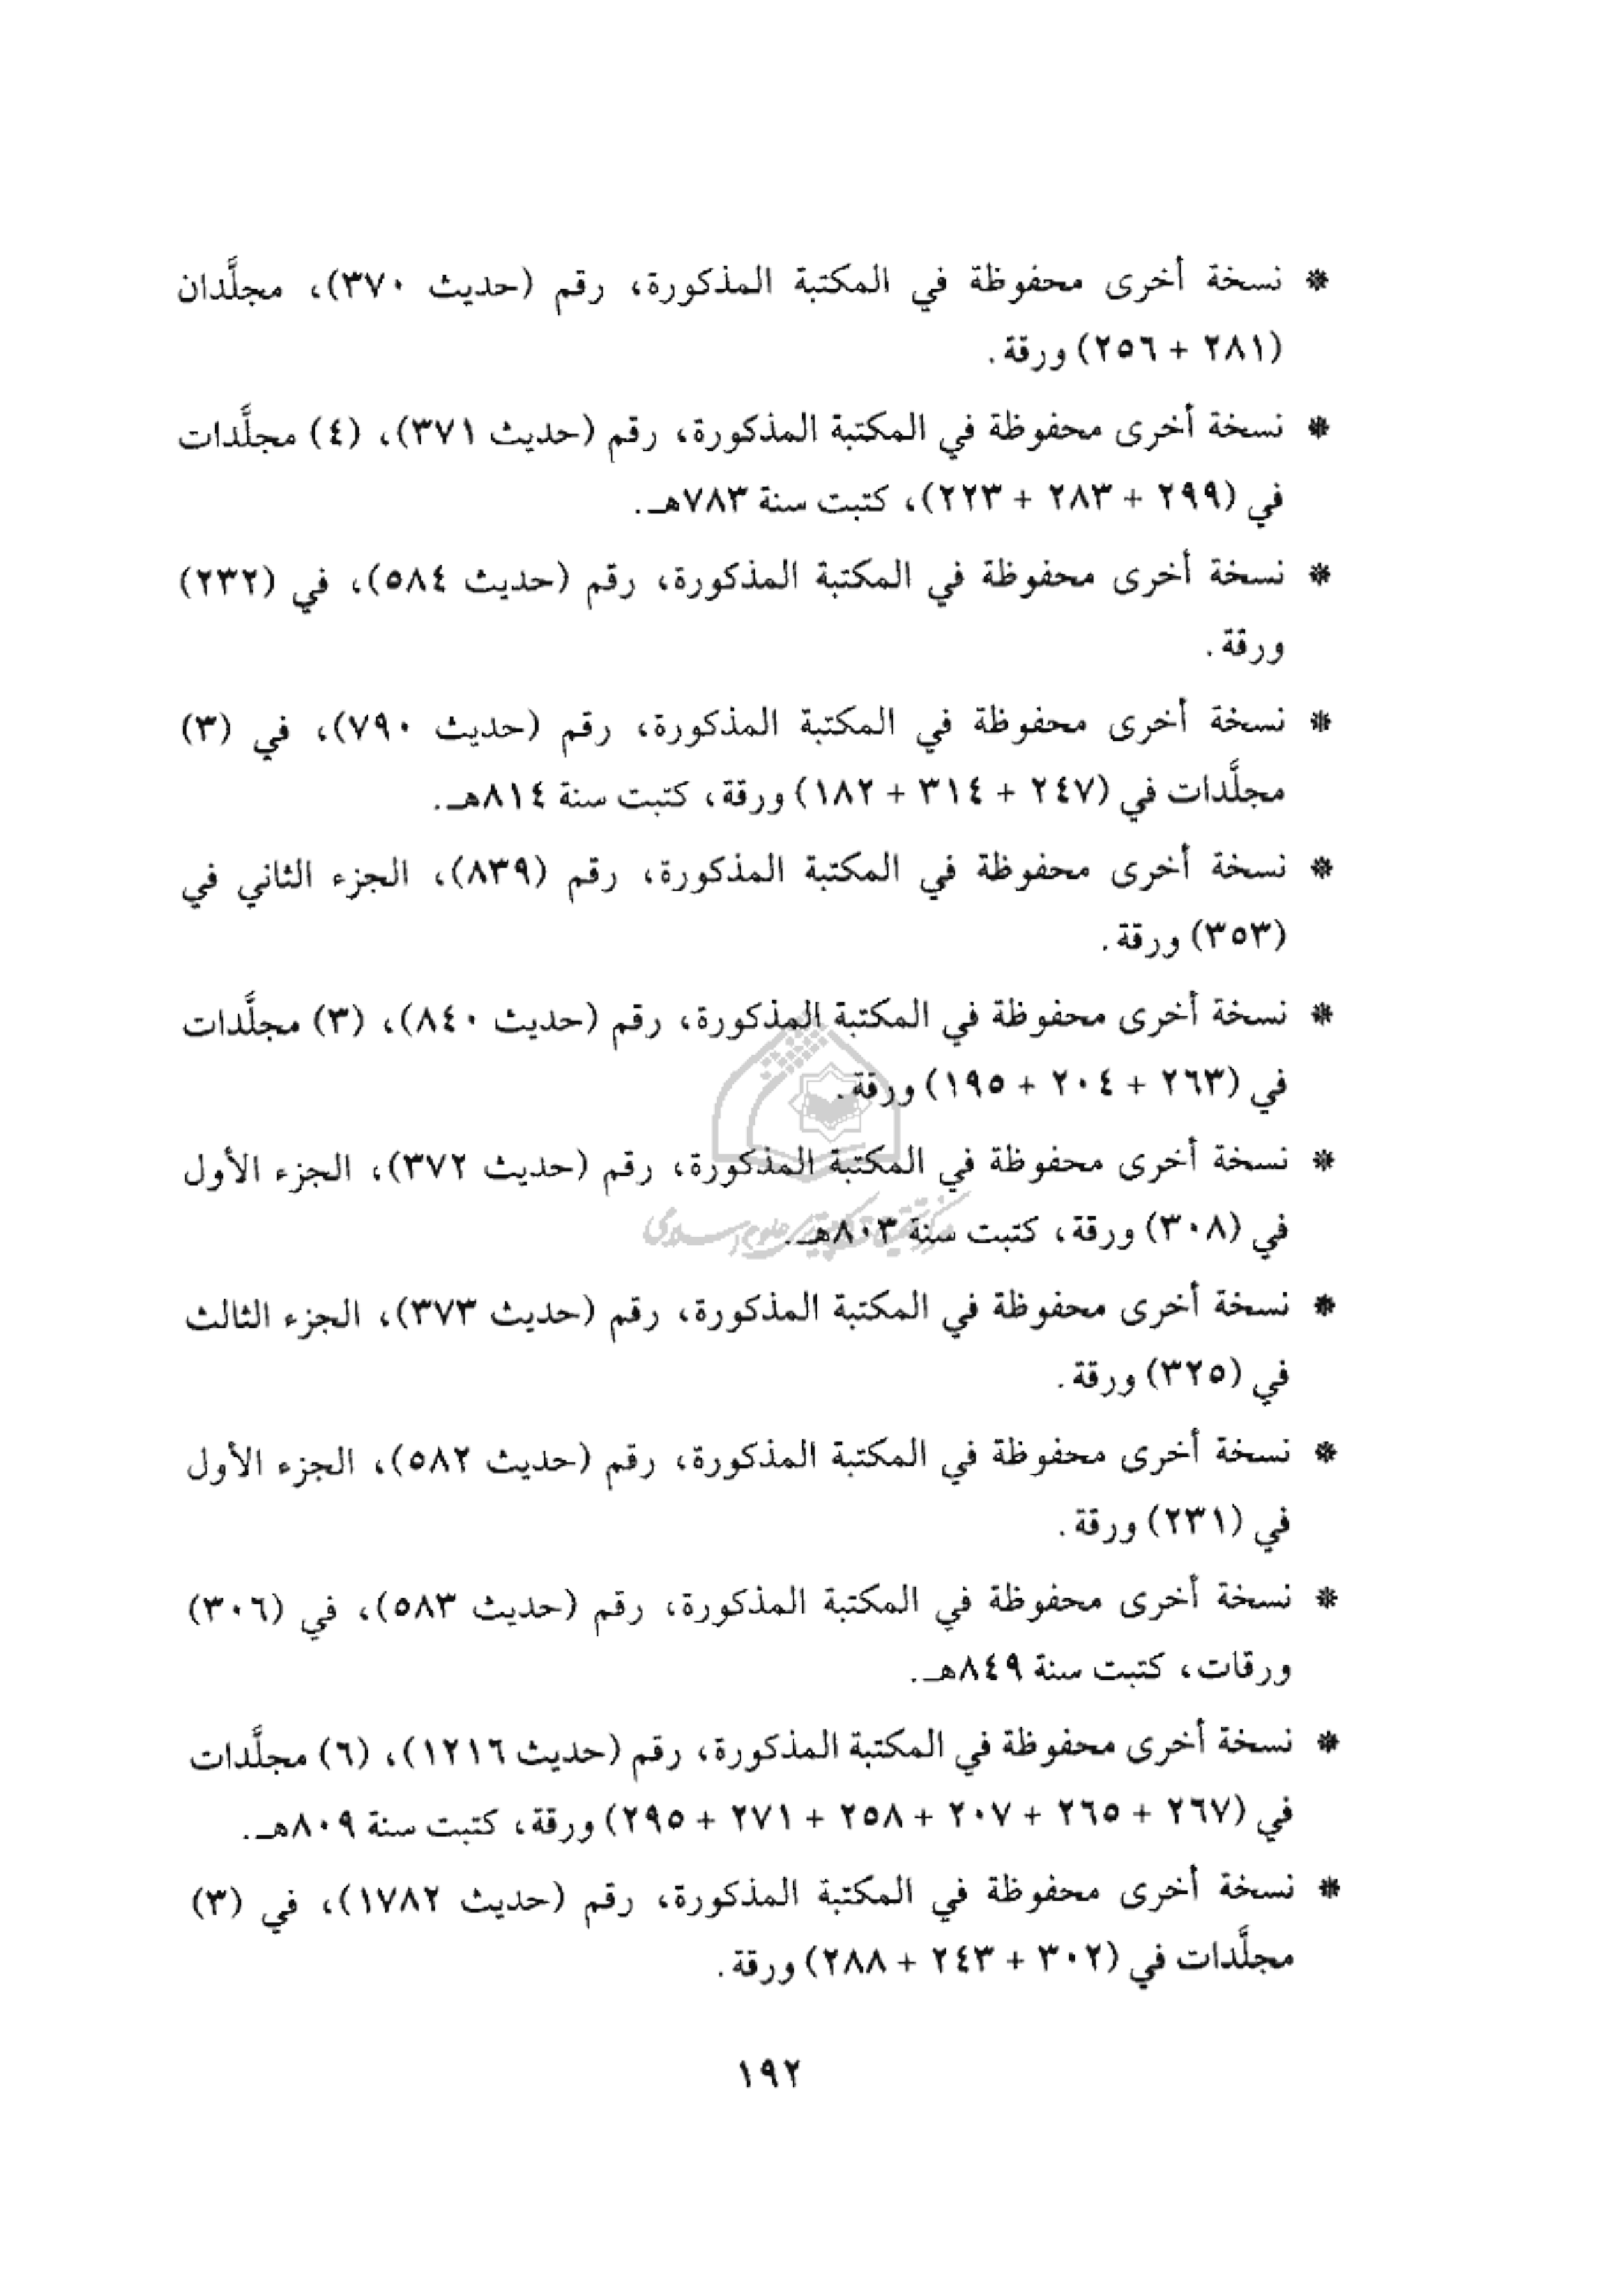 * نسخة أخرى محفوظة في المكتبة المذكورة، رقم (حديث ٣٧٠)، مجلَّدان
(٢٨١ + ٢٥٦) ورقة.
* نسخة أخرى محفوظة في المكتبة المذكورة، رقم (حديث ٣٧١)، (٤) مجلَّدات
في (٢٩٩ + ٢٨٣ + ٢٢٣)، كتبت سنة ٧٨٣هـ.
* نسخة أخرى محفوظة في المكتبة المذكورة، رقم (حديث ٥٨٤)، في (٢٣٢)
ورقة.
* نسخة أخرى محفوظة في المكتبة المذكورة، رقم (حديث ٧٩٠)، في (٣)
مجلَّدات في (٢٤٧ + ٣١٤ + ١٨٢) ورقة، كتبت سنة ٨١٤هـ.
* نسخة أخرى محفوظة في المكتبة المذكورة، رقم (٨٣٩)، الجزء الثاني في
(٣٥٣) ورقة.
* نسخة أخرى محفوظة في المكتبة المذكورة، رقم (حديث ٨٤٠)، (٣) مجلَّدات
في (٢٦٣ + ٢٠٤ + ١٩٥) ورقة.
* نسخة أخرى محفوظة في المكتبة المذكورة، رقم (حديث ٣٧٢)، الجزء الأول
في (٣٠٨) ورقة، كتبت سنة ٨٠٣هـ.
* نسخة أخرى محفوظة في المكتبة المذكورة، رقم (حديث ٣٧٣)، الجزء الثالث
في (٣٢٥) ورقة.
* نسخة أخرى محفوظة في المكتبة المذكورة، رقم (حديث ٥٨٢)، الجزء الأول
في (٢٣١) ورقة.
* نسخة أخرى محفوظة في المكتبة المذكورة، رقم (حديث ٥٨٣)، في (٣٠٦)
ورقات، كتبت سنة ٨٤٩هـ.
* نسخة أخرى محفوظة في المكتبة المذكورة، رقم (حديث ١٢١٦)، (٦) مجلَّدات
في (٢٦٧ + ٢٦٥ + ٢٠٧ + ٢٥٨ + ٢٧١ + ٢٩٥) ورقة، كتبت سنة ٨٠٩هـ.
* نسخة أخرى محفوظة في المكتبة المذكورة، رقم (حديث ١٧٨٢)، في (٣)
مجلَّدات في (٣٠٢ + ٢٤٣ + ٢٨٨) ورقة.
١٩٢